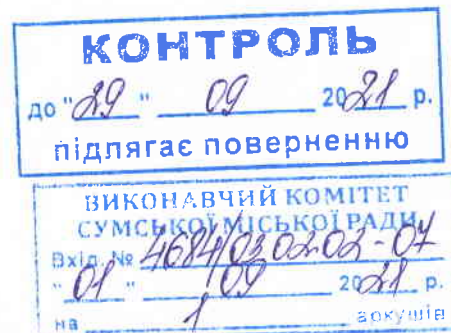 КОНТРОЛЬ
до "29" 09 2021 р.
підлягає поверненню
ВИКОНАВЧИЙ КОМІТЕТ
СУМСЬКОЇ МІСЬКОЇ РАДИ
Вхід. № 4684/03.02.02-07
"01" 09 2021 р.
на 1 аркушів